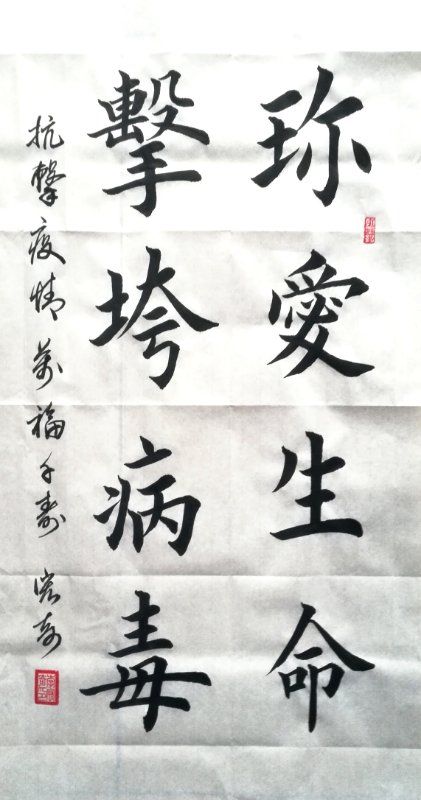 珎愛生命
擊垮病毒
抗擊疫情萬福千壽